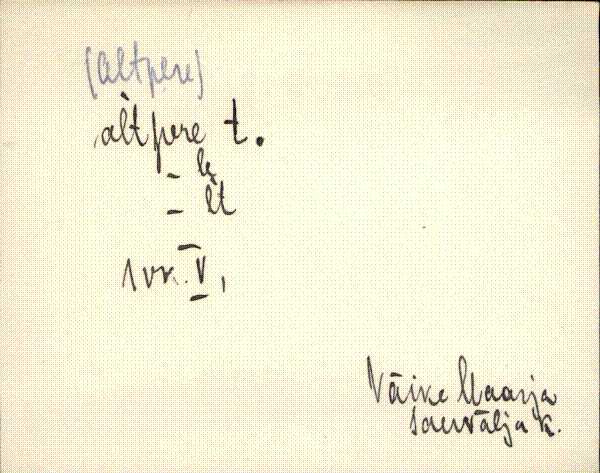 (Altpere)
àltpere t.
– le
– lt
1 vk. V,
Väike Maarja
Sauvälja k.